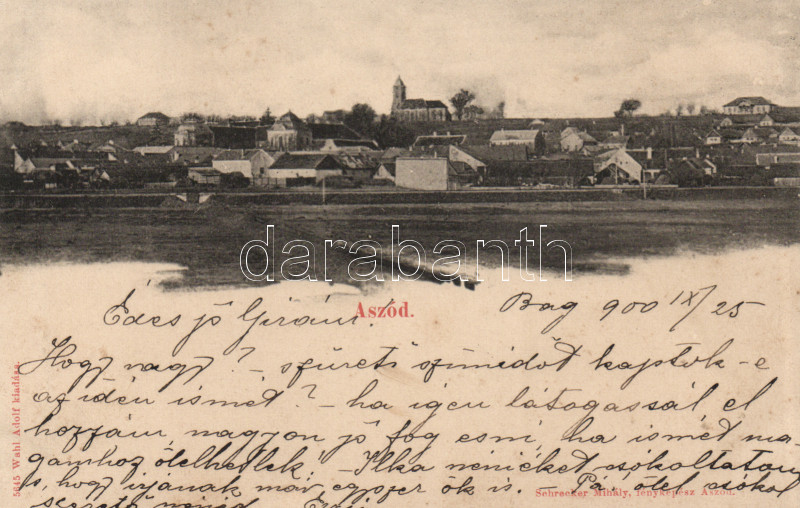 darabanth
Aszód.
Bag 900 IX/25
Édes jó Giránı!
Hogy vagy? - szüreti szünidőt kaptok-e
az idén ismét? - ha igen látogassál el
hozzám, nagyon jó fog esni, ha ismét ma-
gamhoz ölelhetlek! - Ilka néniéket csókoltatom
is, hogy irjanak már egyszer ők is. - Pá, ölel csókol
szerető nénéd
5645 Wahl Adolf kiadása.
Schrecker Mihály, fényképész Aszód.